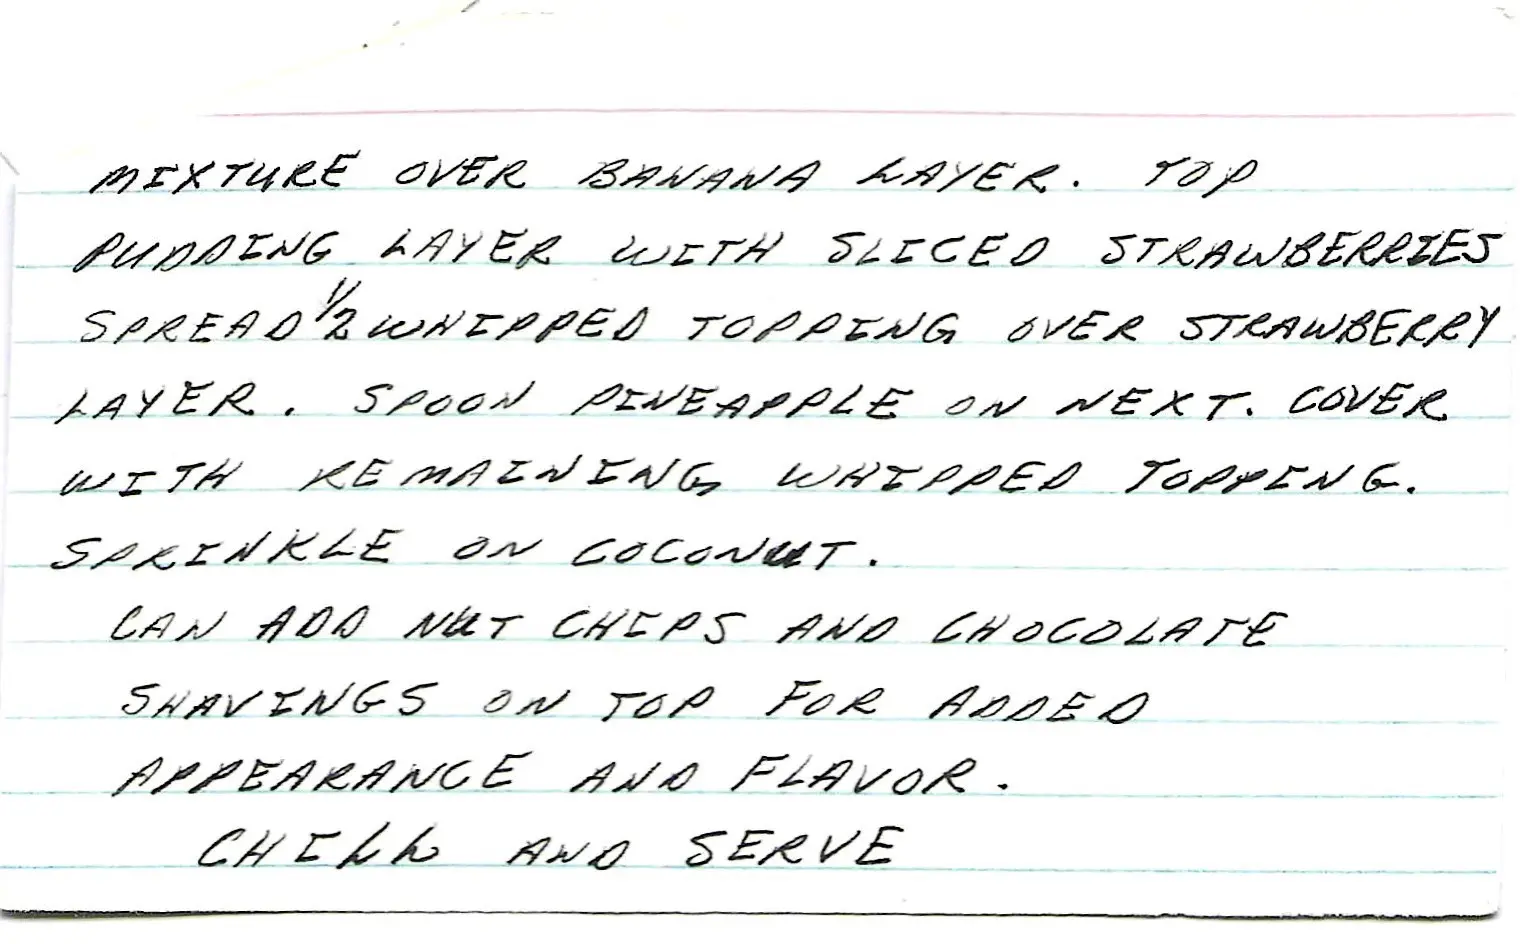 MIXTURE OVER BANANA LAYER. TOP
PUDDING LAYER WITH SLICED STRAWBERRIES
SPREAD 1/2 WHIPPED TOPPING OVER STRAWBERRY
LAYER. SPOON PINEAPPLE ON NEXT. COVER
WITH REMAINING WHIPPED TOPPING.
SPRINKLE ON COCONUT.
CAN ADD NUT CHIPS AND CHOCOLATE
SHAVINGS ON TOP FOR ADDED
APPEARANCE AND FLAVOR.
CHILL AND SERVE